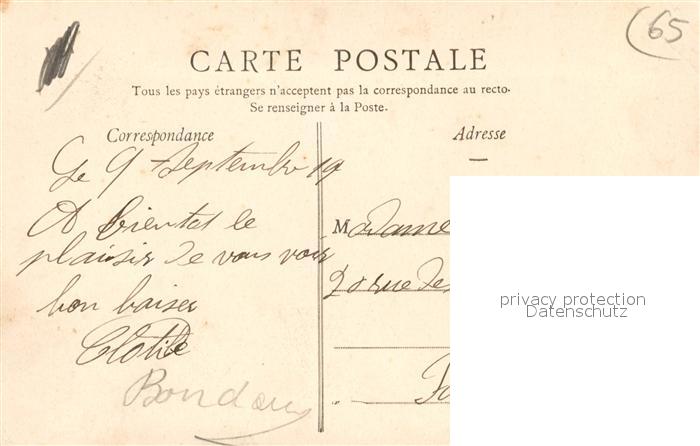 (65
CARTE POSTALE
Tous les pays étrangers n'acceptent pas la correspondance au recto-
Se renseigner à la Poste.
Correspondance
Adresse
Le 9 Septembre 19
A bientot le
plaisir de vous voir
bon baiser
Clotilde
Madame
20 rue des
privacy protection
Datenschutz